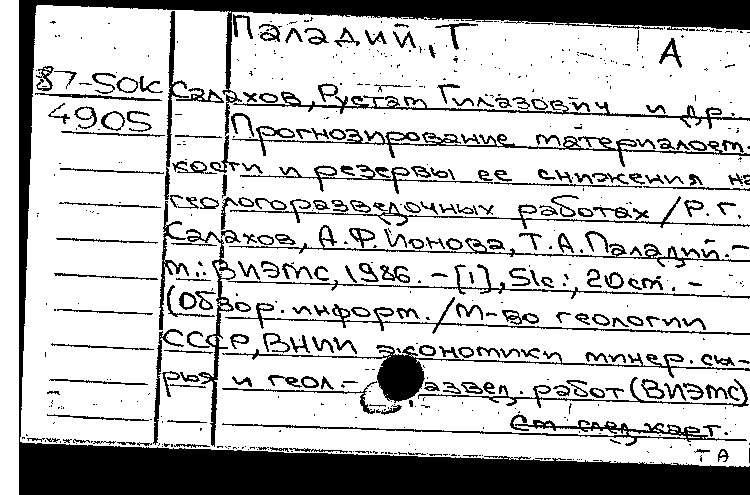 Паладий, Т А
87-50к Салахов, Рустам Гилазович и др.
4905 Прогнозирование материалоем-
кости и резервы ее снижения на
геологоразведочных работах / Р. Г.
Салахов, А. Ф. Ионова, Т. А. Паладий. -
М.: ВИЭМС, 1986. - [1], 51с.; 20см. -
(Обзор. информ. / М-во геологии
СССР, ВНИИ экономики минер. сы-
рья и геол.- развед. работ (ВИЭМС)
См след карт.
ТА